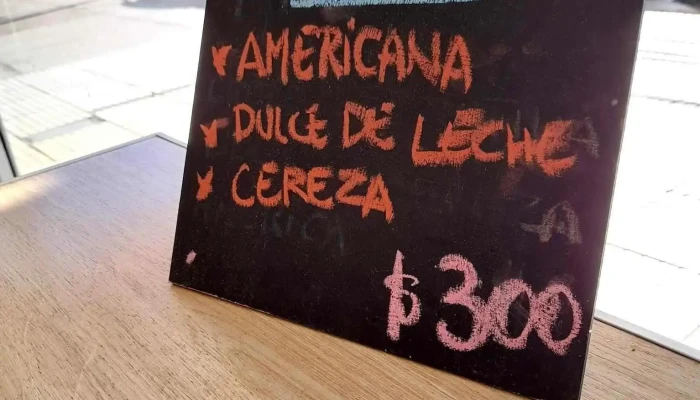 AMERICANA
DULCE DE LECHE
CEREZA
$300